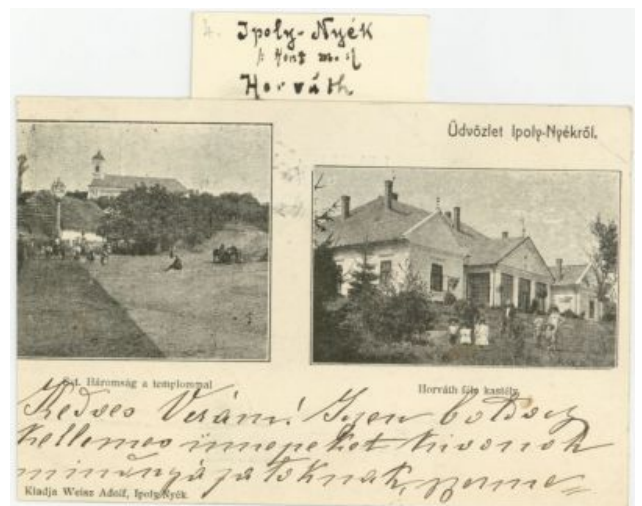 4. Ipoly-Nyék
Hont m.
Horváth
Üdvözlet Ipoly-Nyékről.
Szt. Háromság a templommal
Horváth féle kastély.
Kedves Verám! Igen boldog
kellemes ünnepeket kivonok
mindnyájatoknak,
Kiadja Weisz Adolf, Ipoly-Nyék.